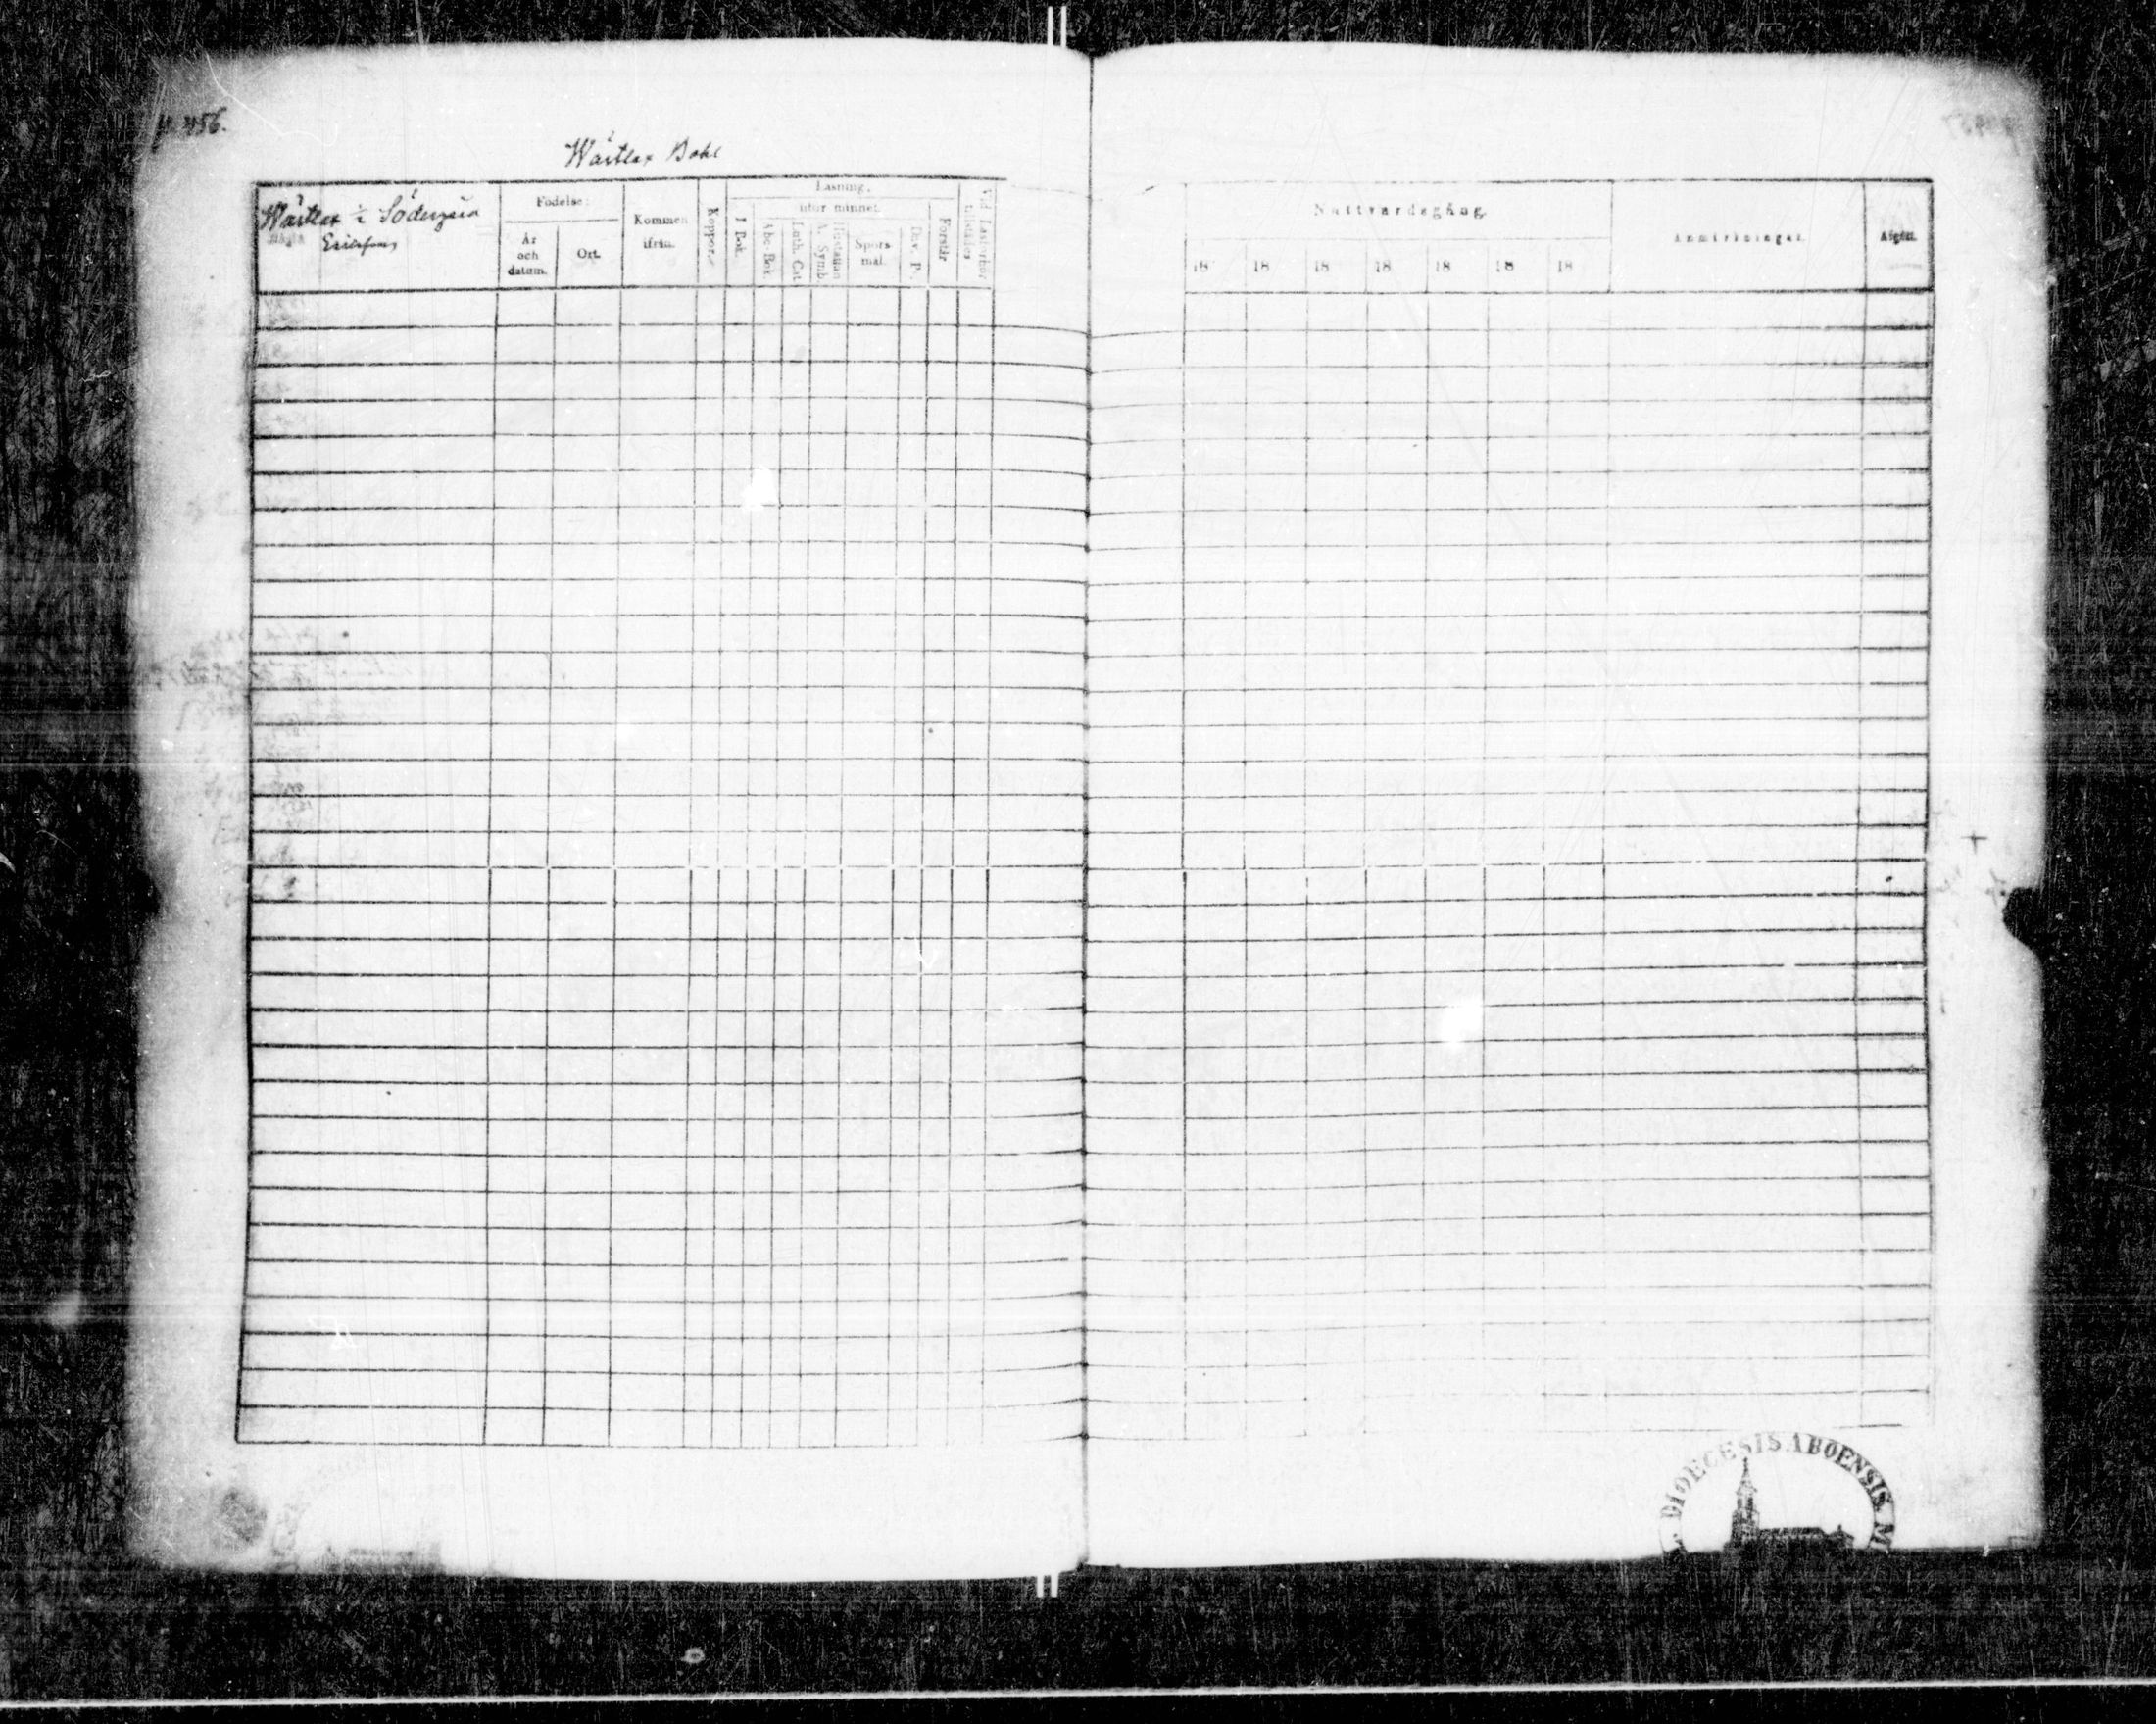 p. 456.
Wårtlax Bohl
Wårtlax ½ Södergård
Ericksons
Födelse:
År och datum.
Ort.
Kommen ifrån.
Koppor.
Läsning.
I Bok.
utur minnet.
Abc-Bok.
Luth. Cat.
A. Symb.
Spörs mål.
Dav. P.
Förstår
Vid Läsförhör tillstädes
Nattvardsgång.
18 18 18 18 18 18 18
Anmärkningar.
Afgått.
DIOECESIS ABOENSIS. M